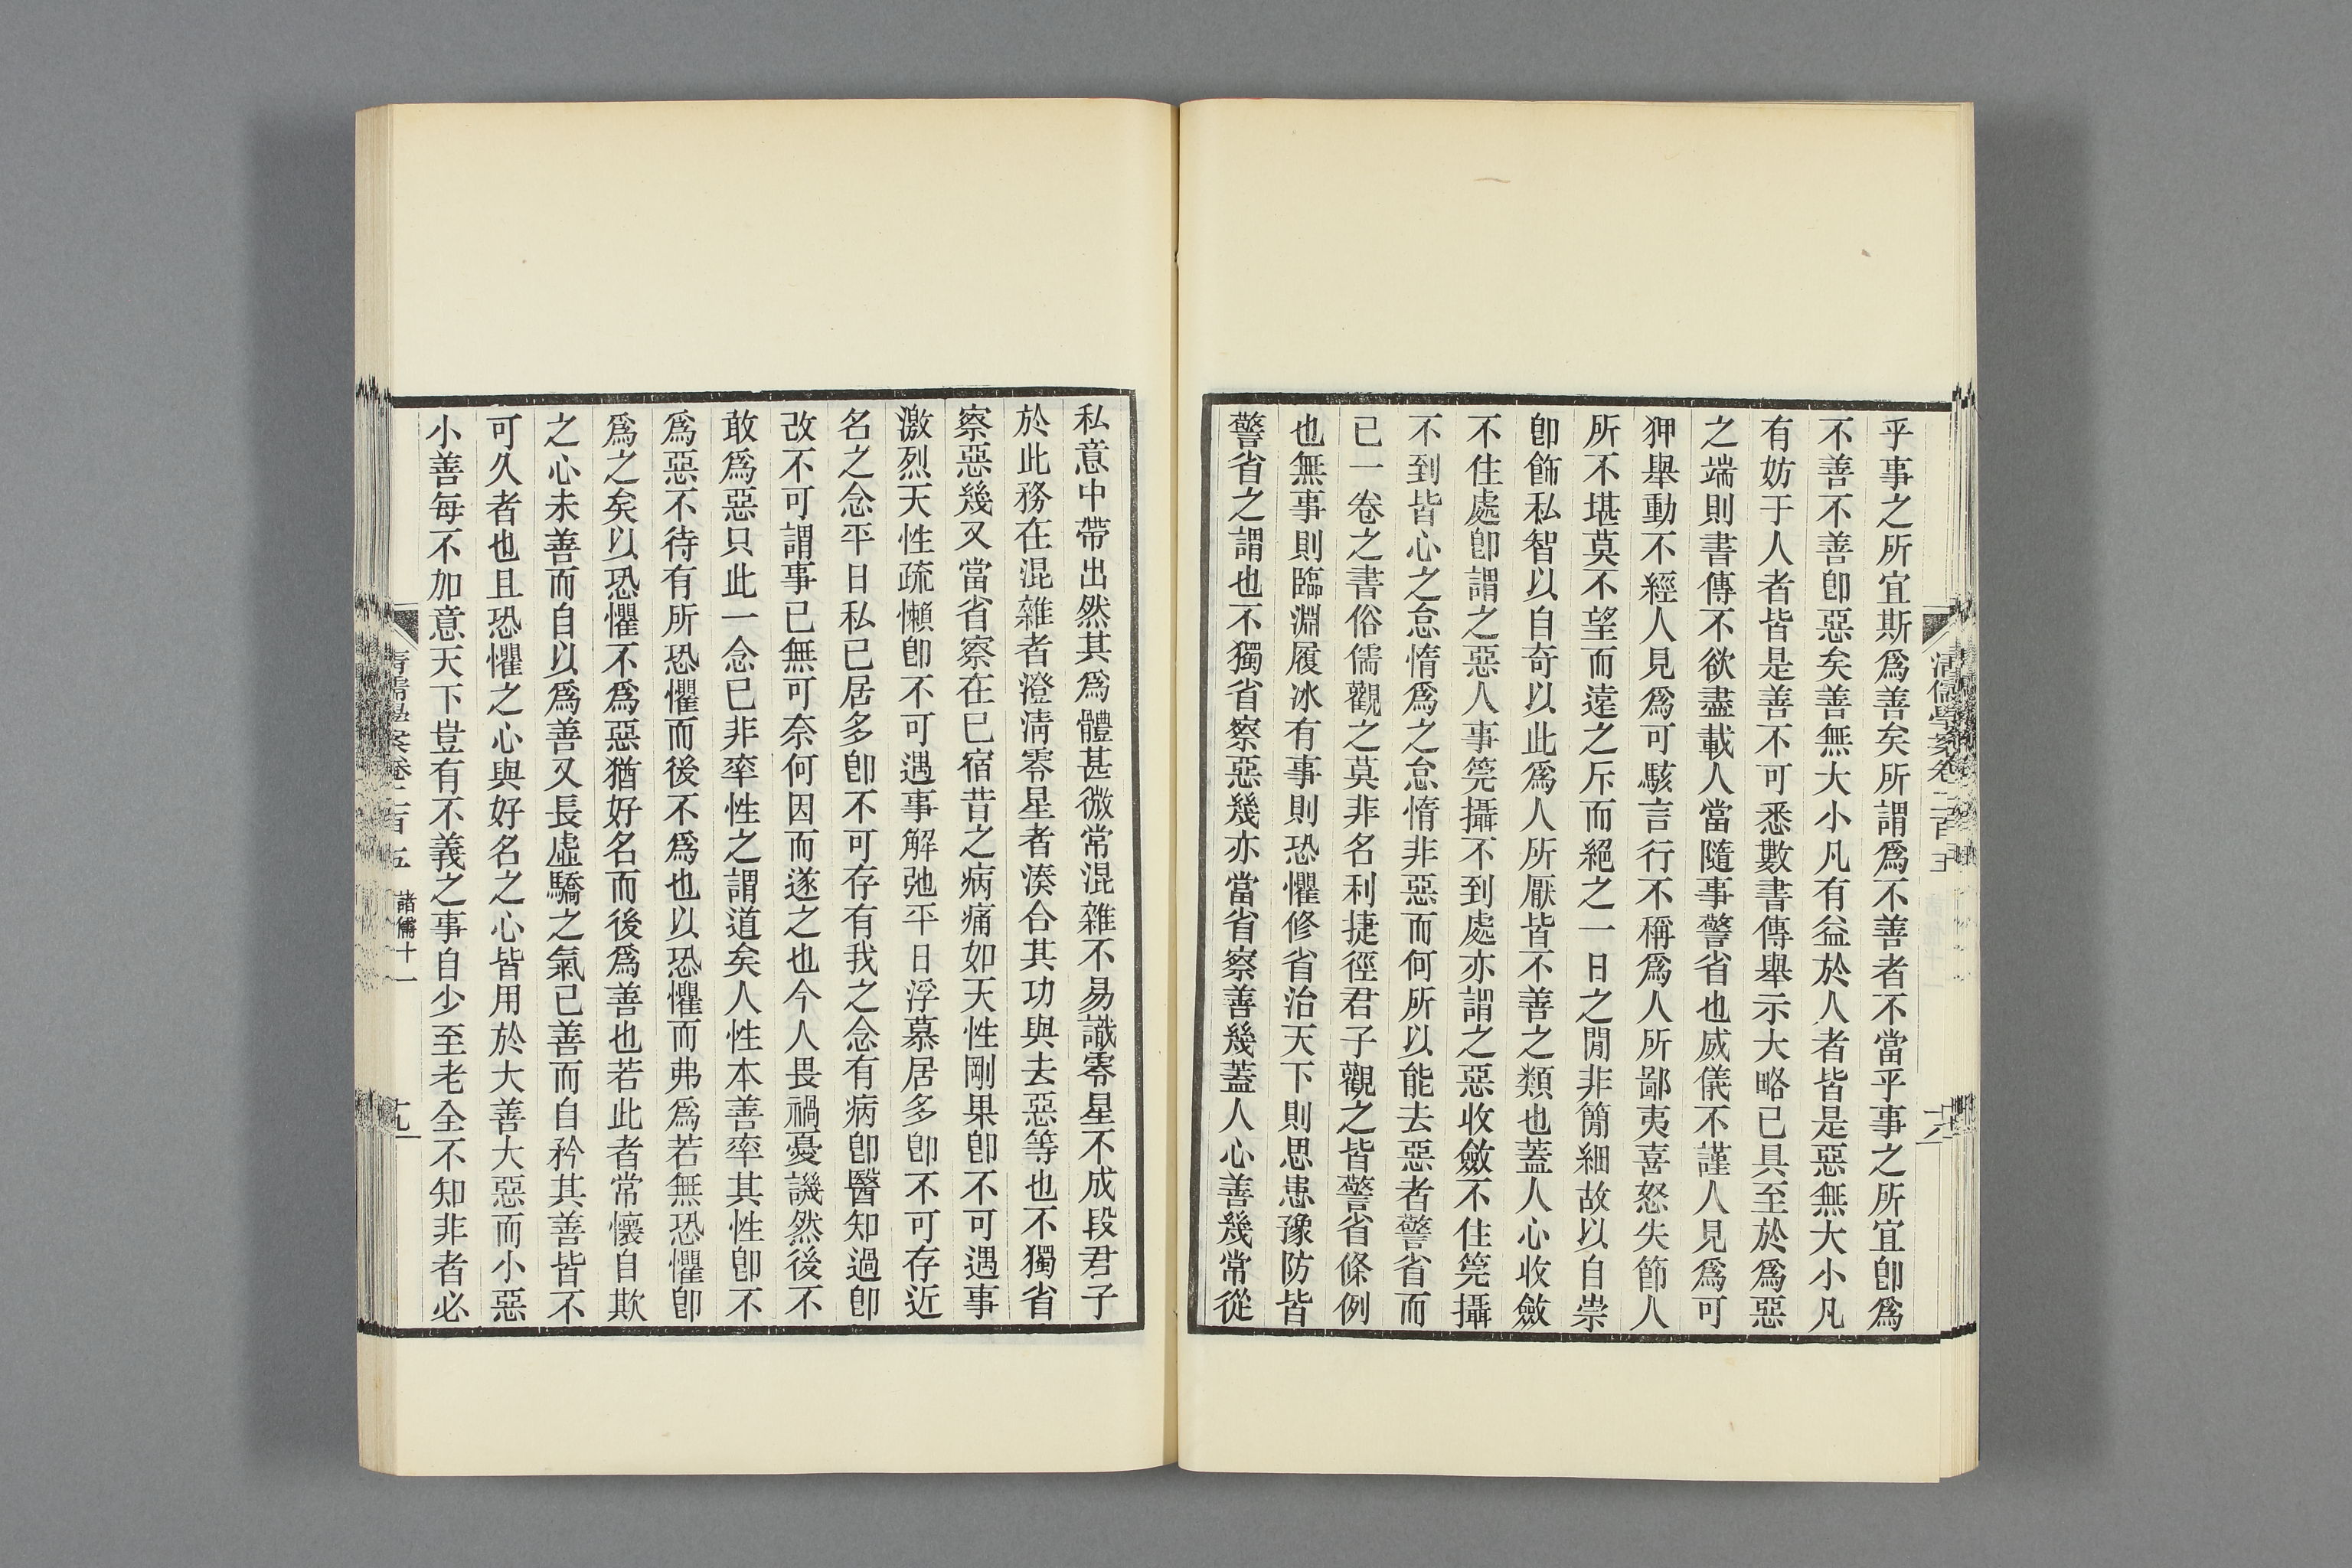 乎事之所宜斯爲善矣所謂爲不善者不當乎事之所宜卽爲
不善不善卽惡矣善無大小凡有益於人者皆是惡無大小凡
有妨于人者皆是善不可悉數書傳舉示大略已具至於爲惡
之端則書傳不欲盡載人當隨事警省也威儀不謹人見爲可
狎舉動不經人見爲可駭言行不稱爲人所鄙夷喜怒失節人
所不堪莫不望而遠之斥而絕之一日之閒非簡細故以自崇
卽飾私智以自奇以此爲人所厭皆不善之類也蓋人心收斂
不住處卽謂之惡人事筦攝不到處亦謂之惡收斂不住筦攝
不到皆心之怠惰爲之怠惰非惡而何所以能去惡者警省而
已一卷之書俗儒觀之莫非名利捷徑君子觀之皆警省條例
也無事則臨淵履冰有事則恐懼修省治天下則思患豫防皆
警省之謂也不獨省察惡幾亦當省察善幾蓋人心善幾常從
清儒學案卷二百五
私意中帶出然其爲體甚微常混雜不易識零星不成段君子
於此務在混雜者澄淸零星者湊合其功與去惡等也不獨省
察惡幾又當省察在已宿昔之病痛如天性剛果卽不可遇事
激烈天性疏懶卽不可遇事解弛平日浮慕居多卽不可存近
名之念平日私已居多卽不可存有我之念有病卽醫知過卽
改不可謂事已無可奈何因而遂之也今人畏禍憂譏然後不
敢爲惡只此一念已非率性之謂道矣人性本善率其性卽不
爲惡不待有所恐懼而後不爲也以恐懼而弗爲若無恐懼卽
爲之矣以恐懼不爲惡猶好名而後爲善也若此者常懷自欺
之心未善而自以爲善又長虛驕之氣已善而自矜其善皆不
可久者也且恐懼之心與好名之心皆用於大善大惡而小惡
小善每不加意天下豈有不義之事自少至老全不知非者必
清儒學案卷二百五 諸儒十一